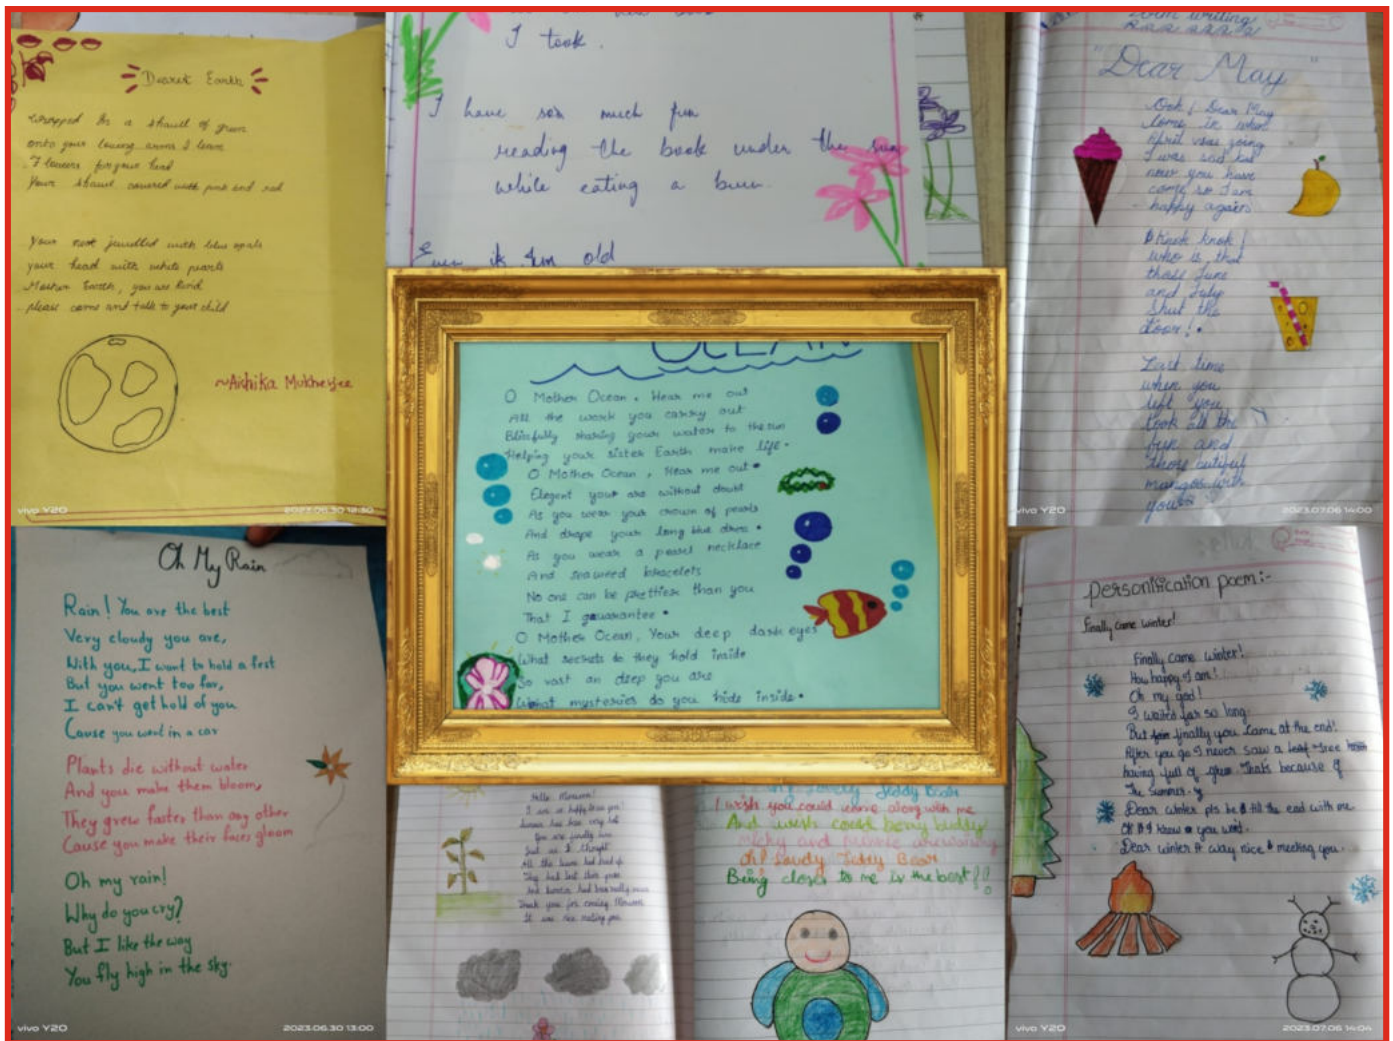 Dearest Earth
Wrapped in a shawl of green
onto your loving arms I lean
I leaves for your bed
Your shawl covered with pink and red
Your vest jewelled with blue opals
your head with white pearls
Mother Earth, you are kind
please come and talk to your child
~Aishika Mukherjee
vivo Y20
2023.06.30 12:30
I took.
I have so much fun
reading the book under the sun
while eating a bun.
Even if I'm old
Loem writing
"Dear May"
Ooh! Dear May
come in when
April was going
I was sad but
now you have
come so I am
happy again
Knok knok!
who is that
those June
and July
Shut the
door!.
Last time
when you
left you
took all the
fun and
those butiful
mangos with
you
vivo Y20
2023.07.06 14:00
OCEAN
O Mother Ocean, Hear me out
All the work you carry out
Blissfully sharing your water to the sun
Helping your sister Earth make life.
O Mother Ocean, Hear me out.
Elegent your are without doubt
As you wear your crown of pearls
And drape your long blue dress.
As you wear a pearl necklace
And seaweed bracelets
No one can be prettier than you
That I guarantee.
O Mother Ocean, Your deep dark eyes
What secrets do they hold inside
So vast an deep you are
What mysteries do you hide inside.
Oh My Rain
Rain! You are the best
Very cloudy you are,
With you, I want to hold a fest
But you went too far,
I can't get hold of you
Cause you went in a car
Plants die without water
And you make them bloom,
They grew faster than any other
Cause you make their faces gloom
Oh my rain!
Why do you cry?
But I like the way
You fly high in the sky.
vivo Y20
2023.06.30 13:00
Hello Monsoon!
I am so happy to see you!
Summer has been very hot
You are finally here
Just as I thought
All the leaves had dried up
They had lost their
And summer had been really
Thank you for coming Monsoon
It was nice meeting you
Lovely Teddy Bear
I wish you could come along with me
And wish could be my buddy
Oh! Lovely Teddy Bear
Being closer to me is the best!!
Personification poem:-
Finally came winter!
Finally came winter!
How happy I am!
Oh my god!
I waited for so long.
But finally you came at the end!
After you go I never saw a tree
having full of green. That's because of
The Summer.
Dear winter pls be till the end with me
I know you won't.
Dear winter it way nice meeting you.
vivo Y20
2023.07.06 14:04